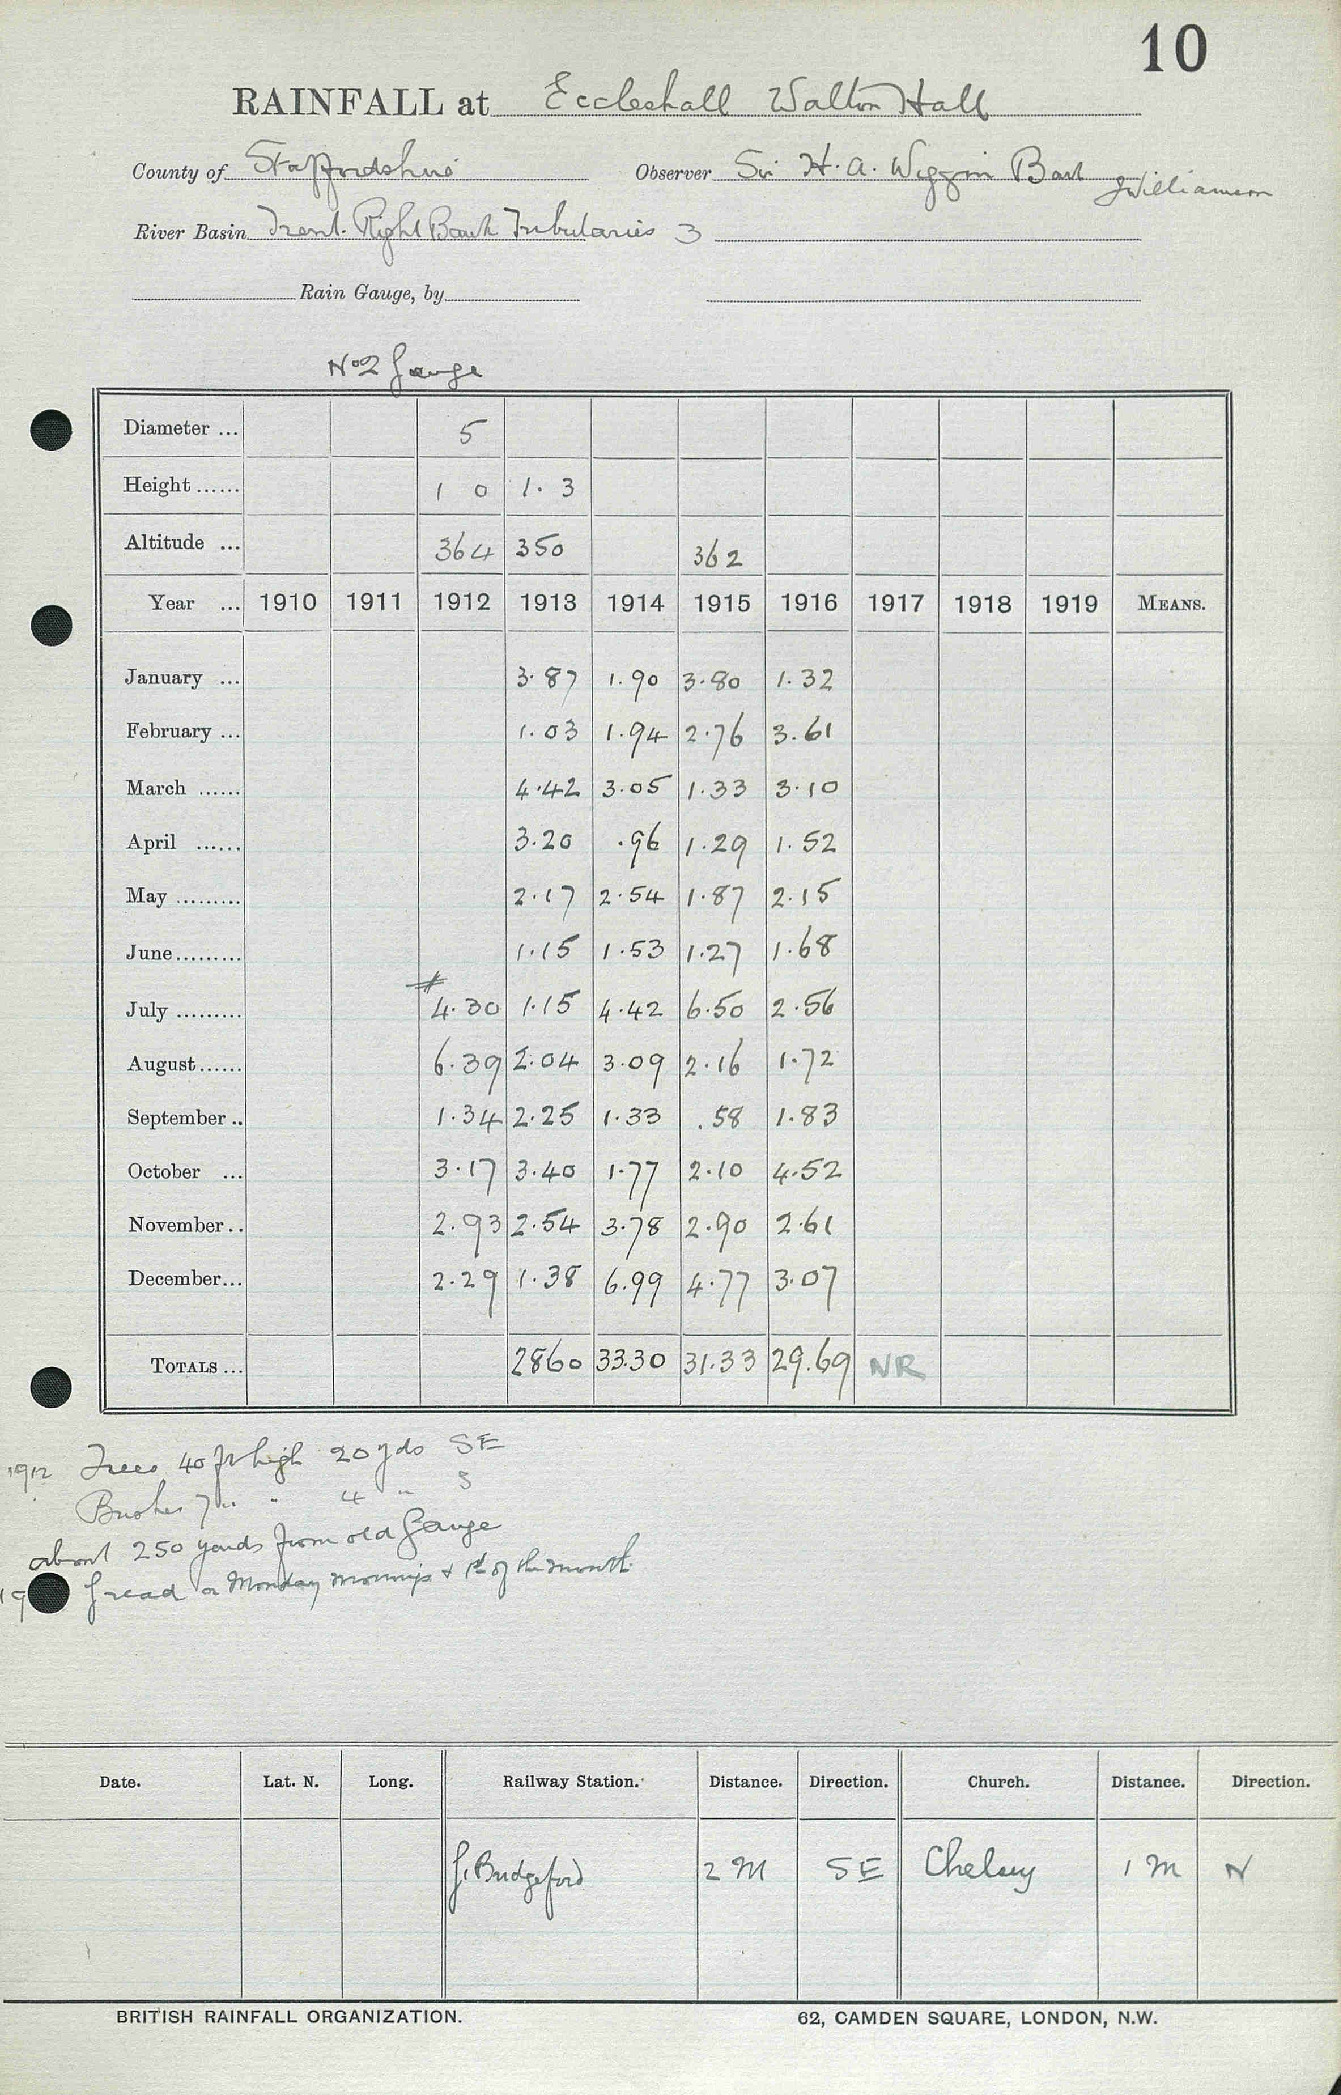 10
RAINFALL at Eccleshall Walton Hall
County of Staffordshire Observer Sir H. A. Wiggin Bart JWilliamson
River Basin Trent. Right Bank Tributaries 3
Rain Gauge, by
No 2 Gauge
Diameter ... 5
Height ...... 1 0 1. 3
Altitude ... 364 350 362
Year ... 1910 1911 1912 1913 1914 1915 1916 1917 1918 1919 MEANS.
January ... 3.87 1.90 3.80 1.32
February ... 1.03 1.94 2.76 3.61
March ...... 4.42 3.05 1.33 3.10
April ...... 3.20 .96 1.29 1.52
May ......... 2.17 2.54 1.87 2.15
June ......... 1.15 1.53 1.27 1.68
#
July ......... 4.30 1.15 4.42 6.50 2.56
August ...... 6.39 2.04 3.09 2.16 1.72
September .. 1.34 2.25 1.33 .58 1.83
October ... 3.17 3.40 1.77 2.10 4.52
November .. 2.93 2.54 3.78 2.90 2.61
December ... 2.29 1.38 6.99 4.77 3.07
TOTALS ... 2860 33.30 31.33 29.69 NR
1912 Trees 40 ft high 20 yds SE
Bushes 7 " " 4 " S
about 250 yards from old gauge
19 read on Monday mornings + 1st of the month.
Date. Lat. N. Long. Railway Station. Distance. Direction. Church. Distance. Direction.
Bridgeford 2 M SE 1 M N
BRITISH RAINFALL ORGANIZATION. 62, CAMDEN SQUARE, LONDON, N.W.